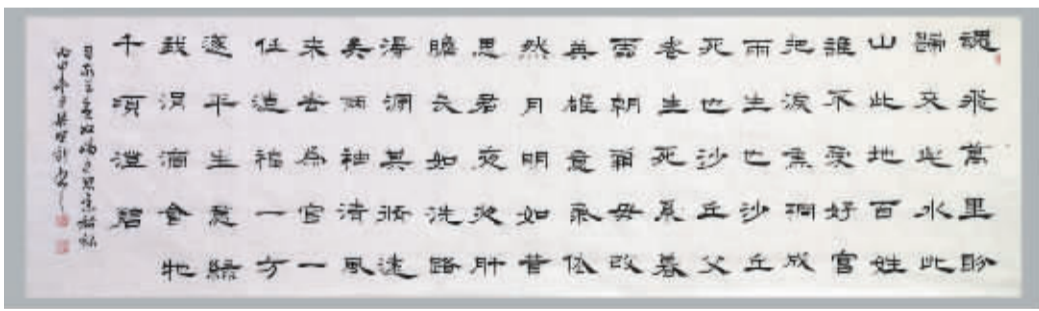 魂飛萬里盼
歸來此水此
山此地百姓
誰不愛好官
把淚焦桐成
雨生也沙丘
死也沙丘父
老生死系暮
雪朝霜毋改
英雄意氣依
然月明如昔
思君夜夜肝
膽長如洗路
漫漫其修遠
矣兩袖清風
來去為官一
任造福一方
遂平生意綠
我涓滴會牠
千頃澄碧